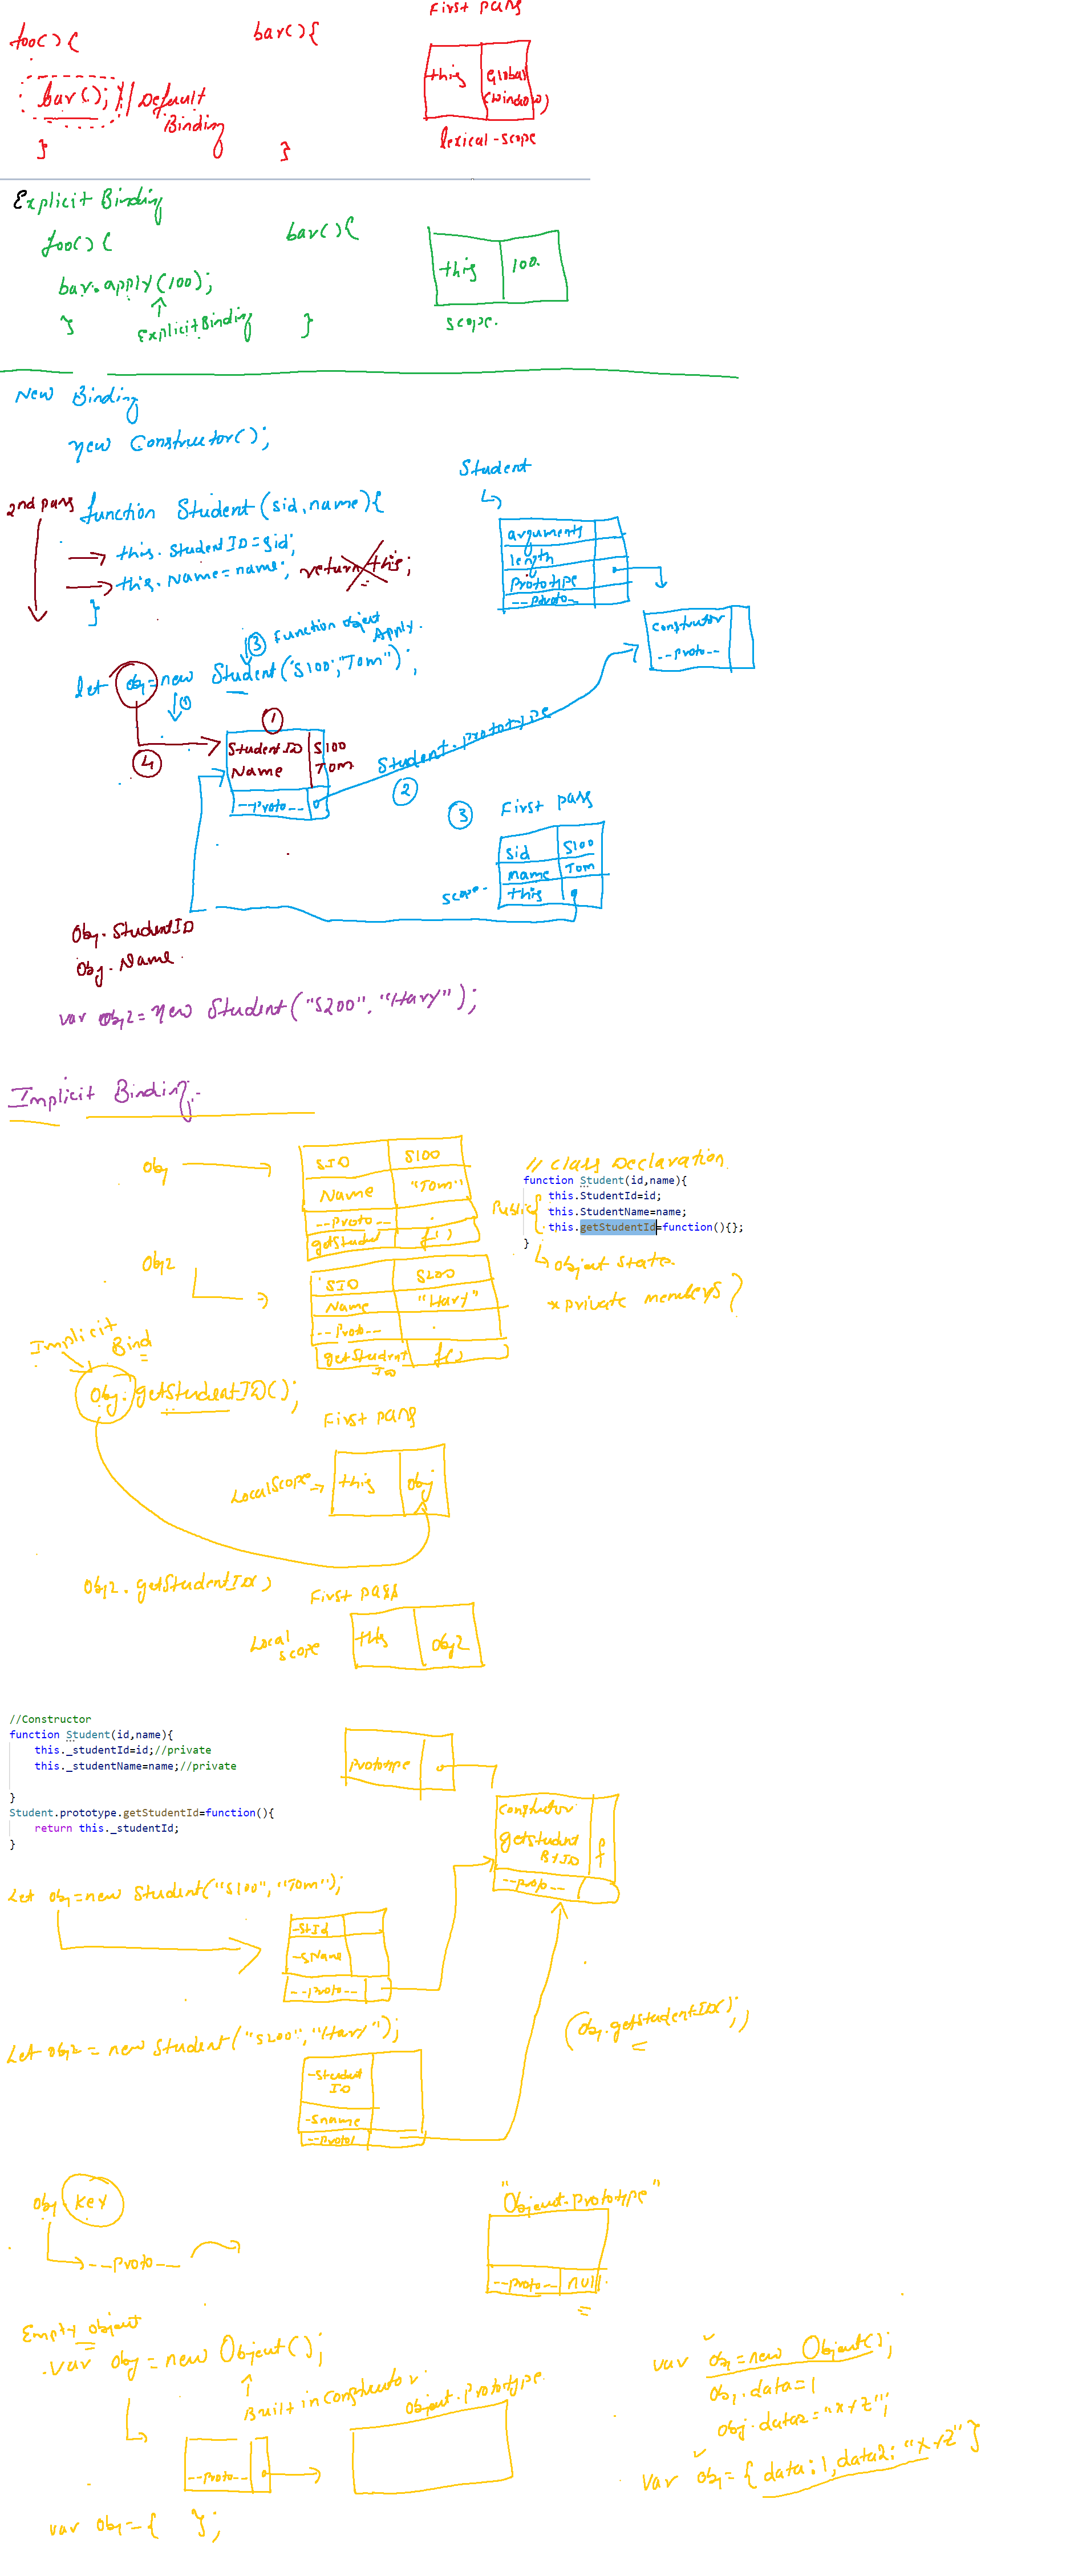 First pass
foo(){
bar(){
bar(); // Default
Binding
}
}
this
Global
(window)
lexical-scope
Explicit Binding
foo(){
bar(){
bar.apply(100);
this
100.
}
Explicit Binding
}
scope.
New Binding
new Constructor();
Student
2nd pass
function Student(sid,name){
this.StudentID=sid;
this.Name=name; return this;
}
arguments
length
Prototype
--proto--
constructor
--proto--
3 Function object
Apply.
let obj=new Student('S100',"Tom");
1
1
StudentID S100
Name Tom
--proto--
4
Student.prototype
2
3 First pass
sid S100
name Tom
this
scope-
Obj.StudentID
Obj.Name.
var obj2=new Student("S200","Hary");
Implicit Binding.-
Obj
SID S100
Name "Tom"
--proto-- .
getStudent f()
// Class Declaration.
function Student(id,name){
this.StudentId=id;
Public
this.StudentName=name;
this.getStudentId=function(){};
}
Object states
* private members?
Obj2
SID S200
Name "Hary"
--Proto-- .
getStudent f()
ID
Implicit
Bind
Obj.getStudentID();
First pass
LocalScope
this obj
Obj2.getStudentID()
First pass
Local
scope
this obj2
//Constructor
function Student(id,name){
this._studentId=id;//private
this._studentName=name;//private
}
Student.prototype.getStudentId=function(){
return this._studentId;
}
Prototype
Constructor
getStudent
ByID
f
--proto--
Let obj=new Student("S100","Tom");
-StId
-SName
--proto--
(obj.getStudentID();)
Let obj2=new Student("S200","Hary");
-Student
ID
-Sname
--proto
obj.key
--proto--
"Object.prototype"
--proto-- null.
Empty object
var obj=new Object();
Built in constructor
Object.prototype.
--proto--
var obj={ };
var obj=new Object();
obj.data=1
obj.data2="xyz";
var obj={data:1,data2:"xyz"}